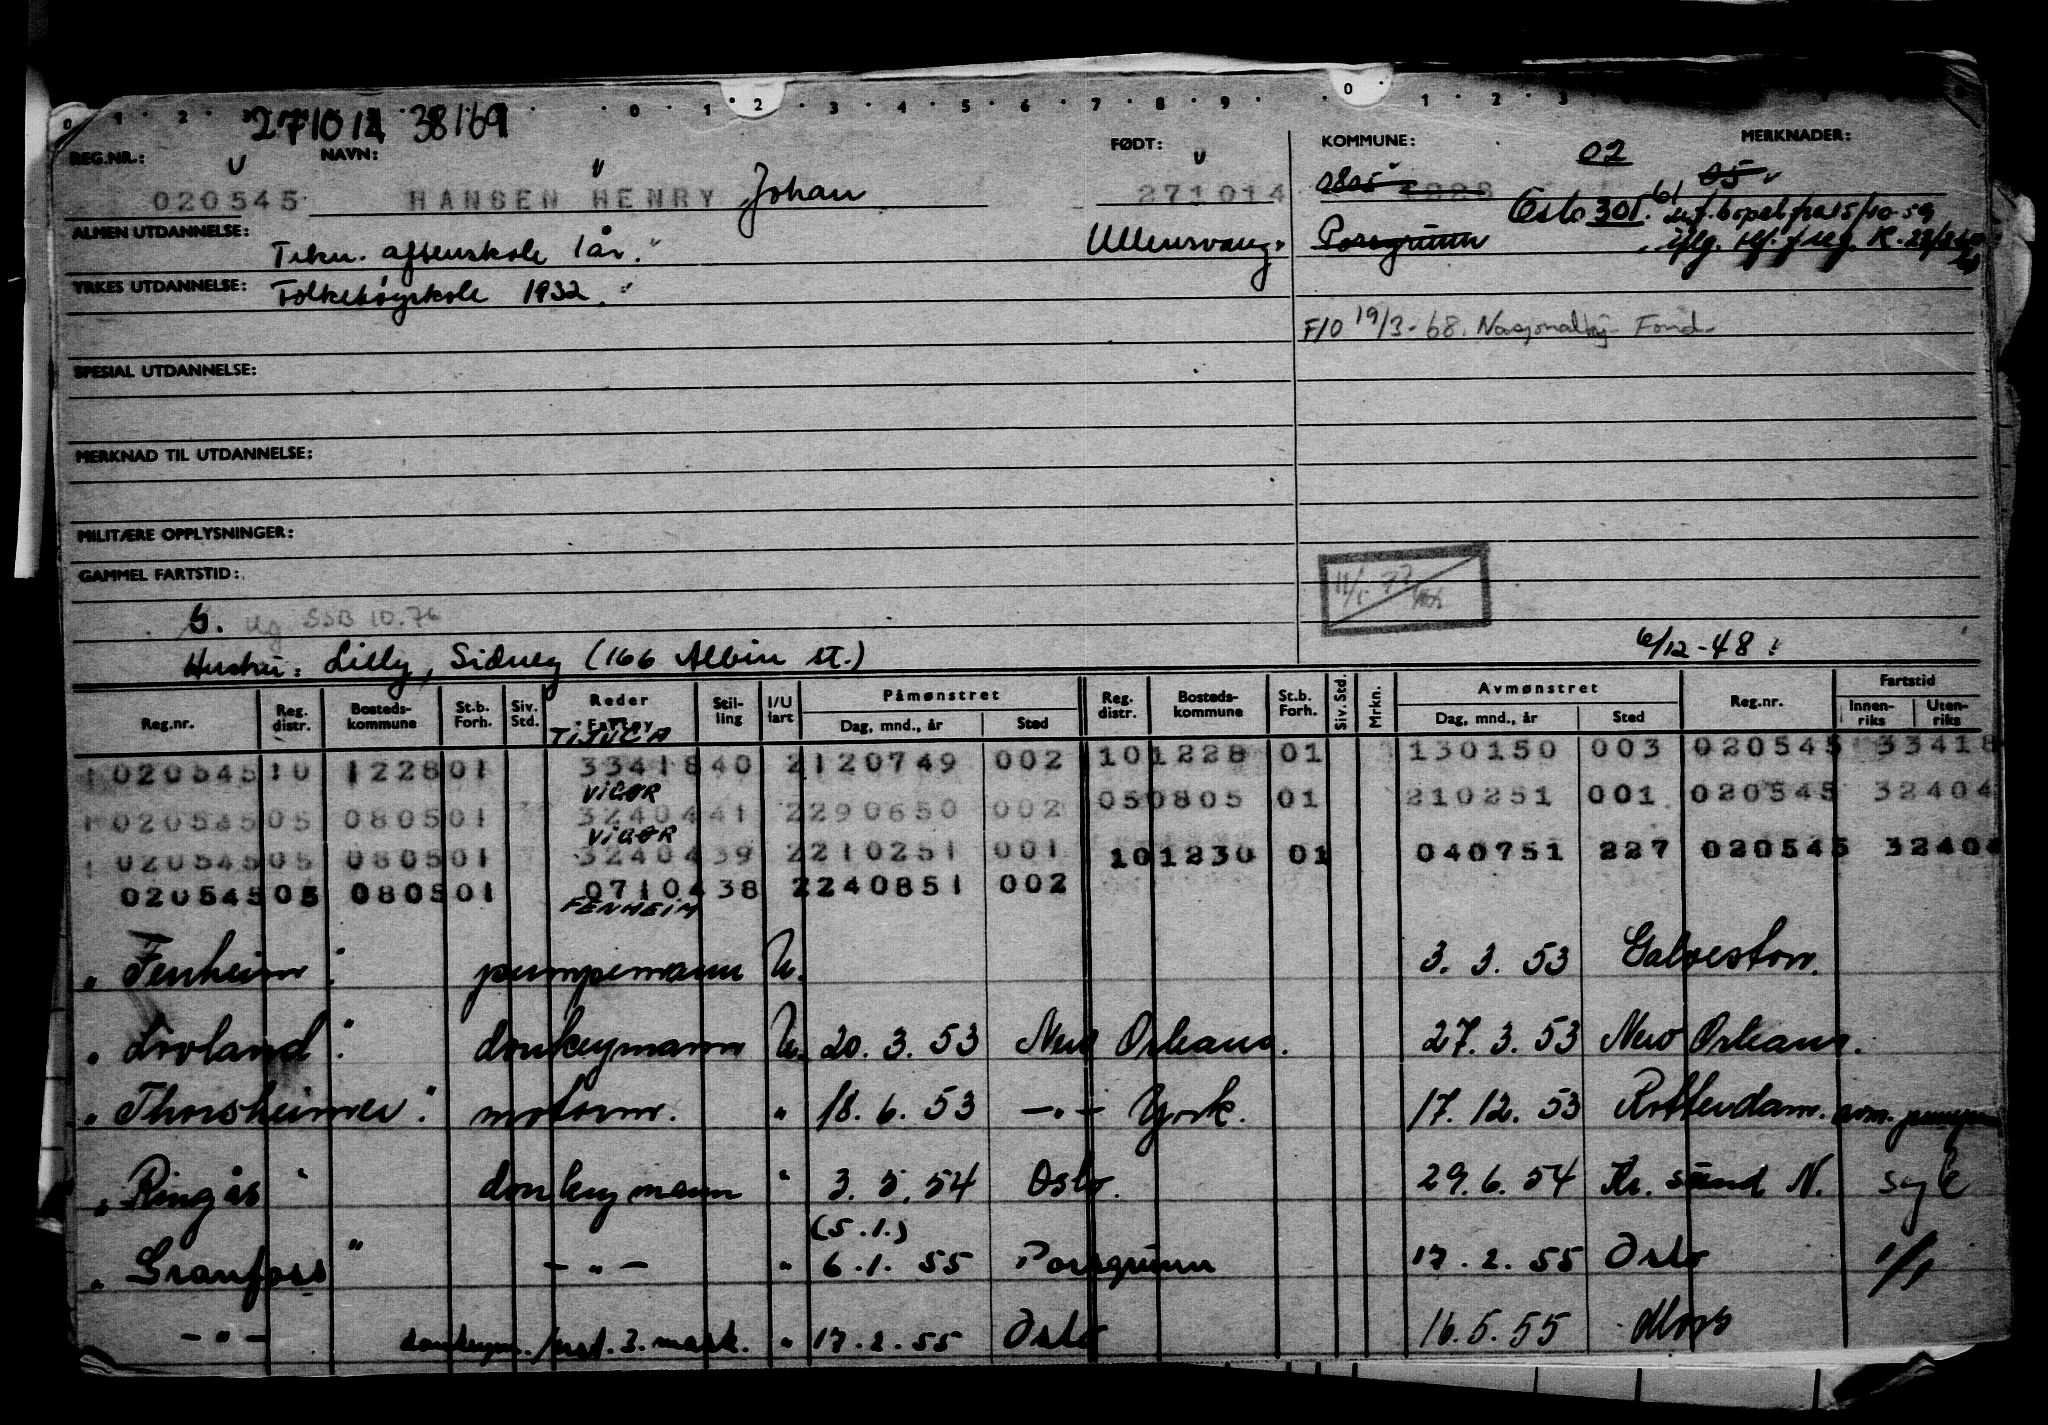 0 1 2 0 1 2 3 4 5 6 7 8 9 0 1 2 3
271014 38169
REG.NR.: NAVN: FØDT: KOMMUNE: 02 MERKNADER:
020545 HANSEN HENRY Johan 271014 0805 1228 05
Oslo 301.
ALMEN UTDANNELSE: Tekn. aftenskole 1 år. Ullensvang. Porsgrunn
YRKES UTDANNELSE: Folkehøyskole 1932.
F/O 19/3-68. Nasjonalhj. Fond
SPESIAL UTDANNELSE:
MERKNAD TIL UTDANNELSE:
MILITÆRE OPPLYSNINGER:
GAMMEL FARTSTID:
S. Ug SSB 10.76
Hustru: Lilly, Sidney (166 Albin st.) 6/12-48.
Reg.nr. Reg. distr. Bosteds-kommune St.b. Forh. Siv. Std. Reder Fartøy Stil-ling I/U fart Påmønstret Dag, mnd., år Sted Reg. distr. Bosteds-kommune St.b. Forh. Siv. Std. Mrkn. Avmønstret Dag, mnd., år Sted Reg.nr. Fartstid Innen-riks Uten-riks
TIJUCA
020545 10 1228 01 33418 40 2 120749 002 10 1228 01 130150 003 020545 33418
VIGØR
020545 05 0805 01 32404 41 2 290650 002 05 0805 01 210251 001 020545 32404
VIGØR
020545 05 0805 01 32404 39 2 210251 001 10 1230 01 040751 227 020545 32404
020545 05 0805 01 07104 38 2 240851 002
FENHEIM
" Fenheim : pumpemann U. 3. 3. 53 Galveston.
" Livland " donkeymann U. 20. 3. 53 New Orleans. 27. 3. 53 New Orleans.
" Thorsheimer " motorm. " 18. 6. 53 -"- York. 17. 12. 53 Rotterdam.
" Ringås " donkeymann " 3. 5. 54 Oslo. 29. 6. 54 Kr. sund N. syk
(5.1.)
" Granfoss " -"- " 6. 1. 55 Porsgrunn 17. 2. 55 Oslo 1/1
-"- donkeym./ust. 3. mask. " 17. 2. 55 Oslo 16. 5. 55 Moss